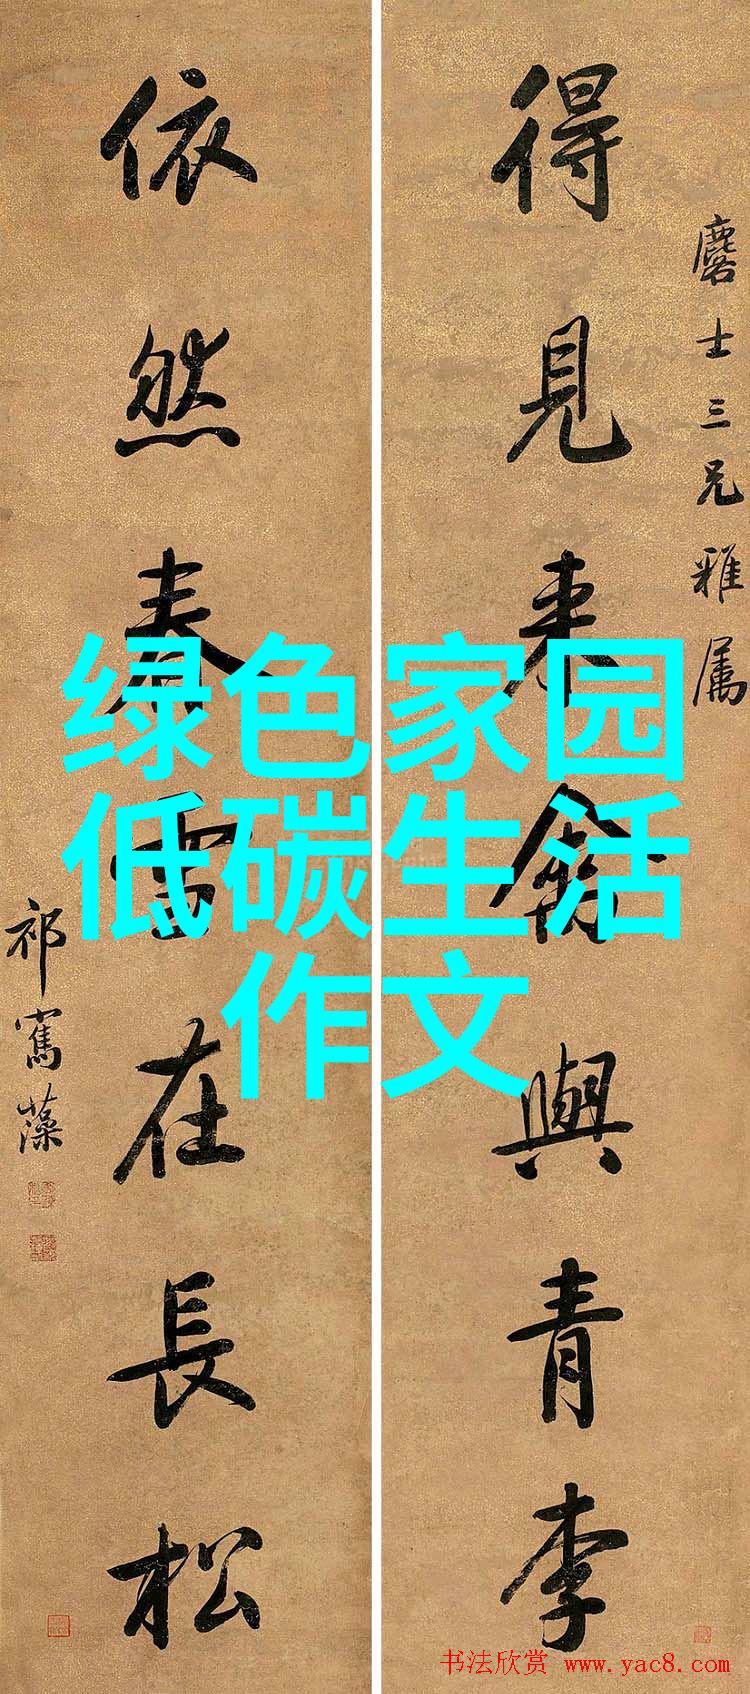 得見来禽與青李
麐士三兄雅属
依然春雪在長松
祁寯藻
绿色家园
低碳生活
作文
书法欣赏 www.yac8.com